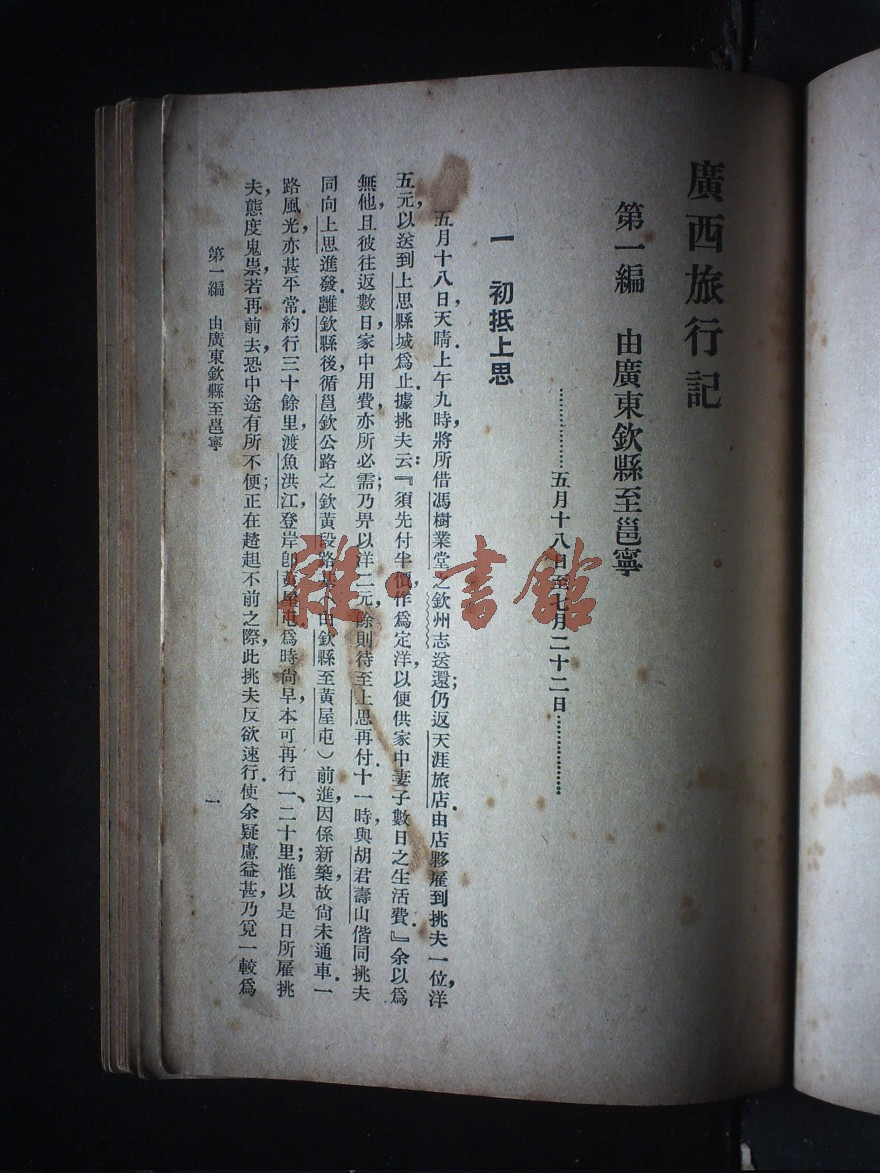 廣西旅行記
第一編　由廣東欽縣至邕寧
………………五月十八日至七月二十二日………………
一　初抵上思
五月十八日，天晴，上午九時，將所借馮樹業堂之欽州志送還；仍返天涯旅店。由店夥雇到挑夫一位，洋
五元，以送到上思縣城爲止。據挑夫云：『須先付半價，作爲定洋，以便供家中妻子數日之生活費。』余以爲
無他，且彼往返數日，家中用費，亦所必需；乃畀以洋二元，餘則待至上思再付。十一時，與胡君壽山偕同挑夫
同向上思進發。離欽縣後，循邕欽公路之欽黃段路基（由欽縣至黃屋屯）前進，因係新築，故尚未通車。一
路風光，亦甚平常。約行三十餘里，渡魚洪江，登岸卽黃屋屯。爲時尚早，本可再行一、二十里；惟以是日所雇挑
夫，態度鬼祟，若再前去，恐中途有所不便；正在趦趄不前之際，此挑夫反欲速行。使余疑慮益甚，乃覓一較爲
第一編　由廣東欽縣至邕寧
一
雜·書館